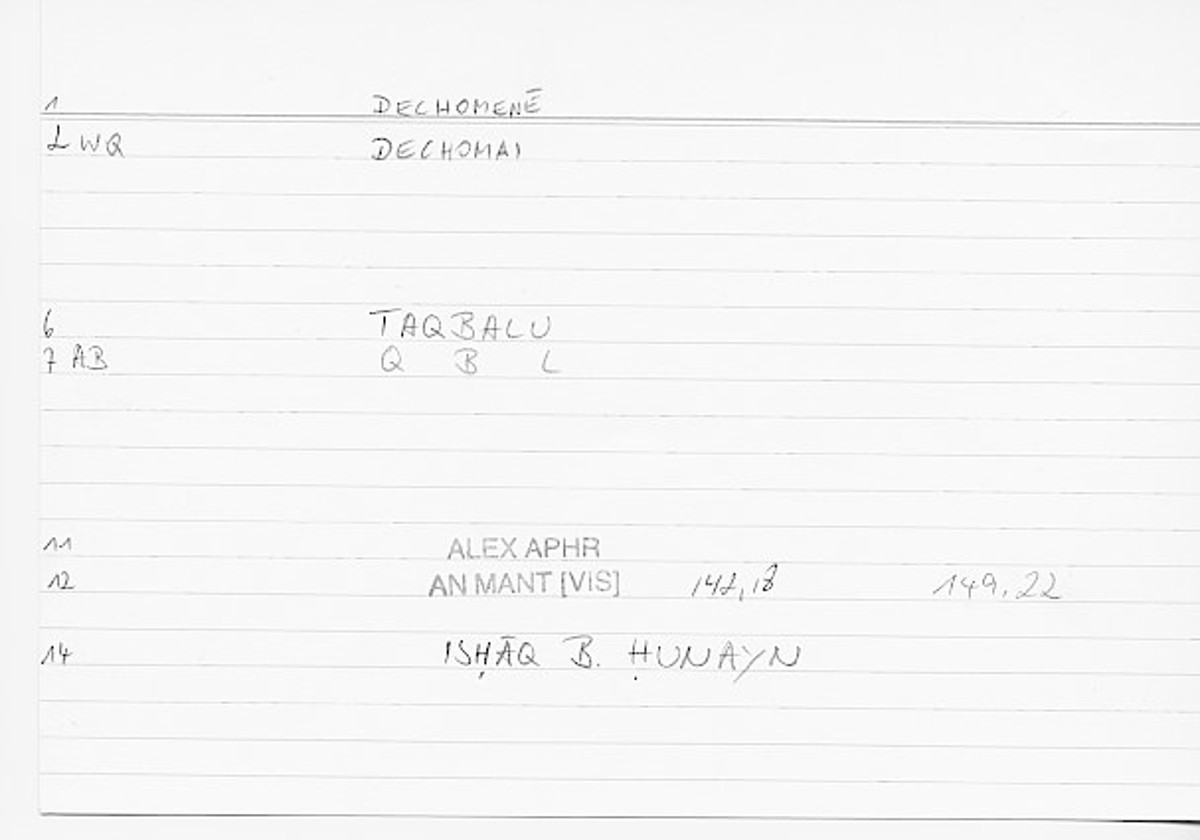 1 DECHOMENĒ
2 WQ DECHOMAI
6 TAQBALU
7 AB Q B L
11 ALEX APHR
12 AN MANT [VIS] 142,18 149,22
14 ISḤĀQ B. ḤUNAYN